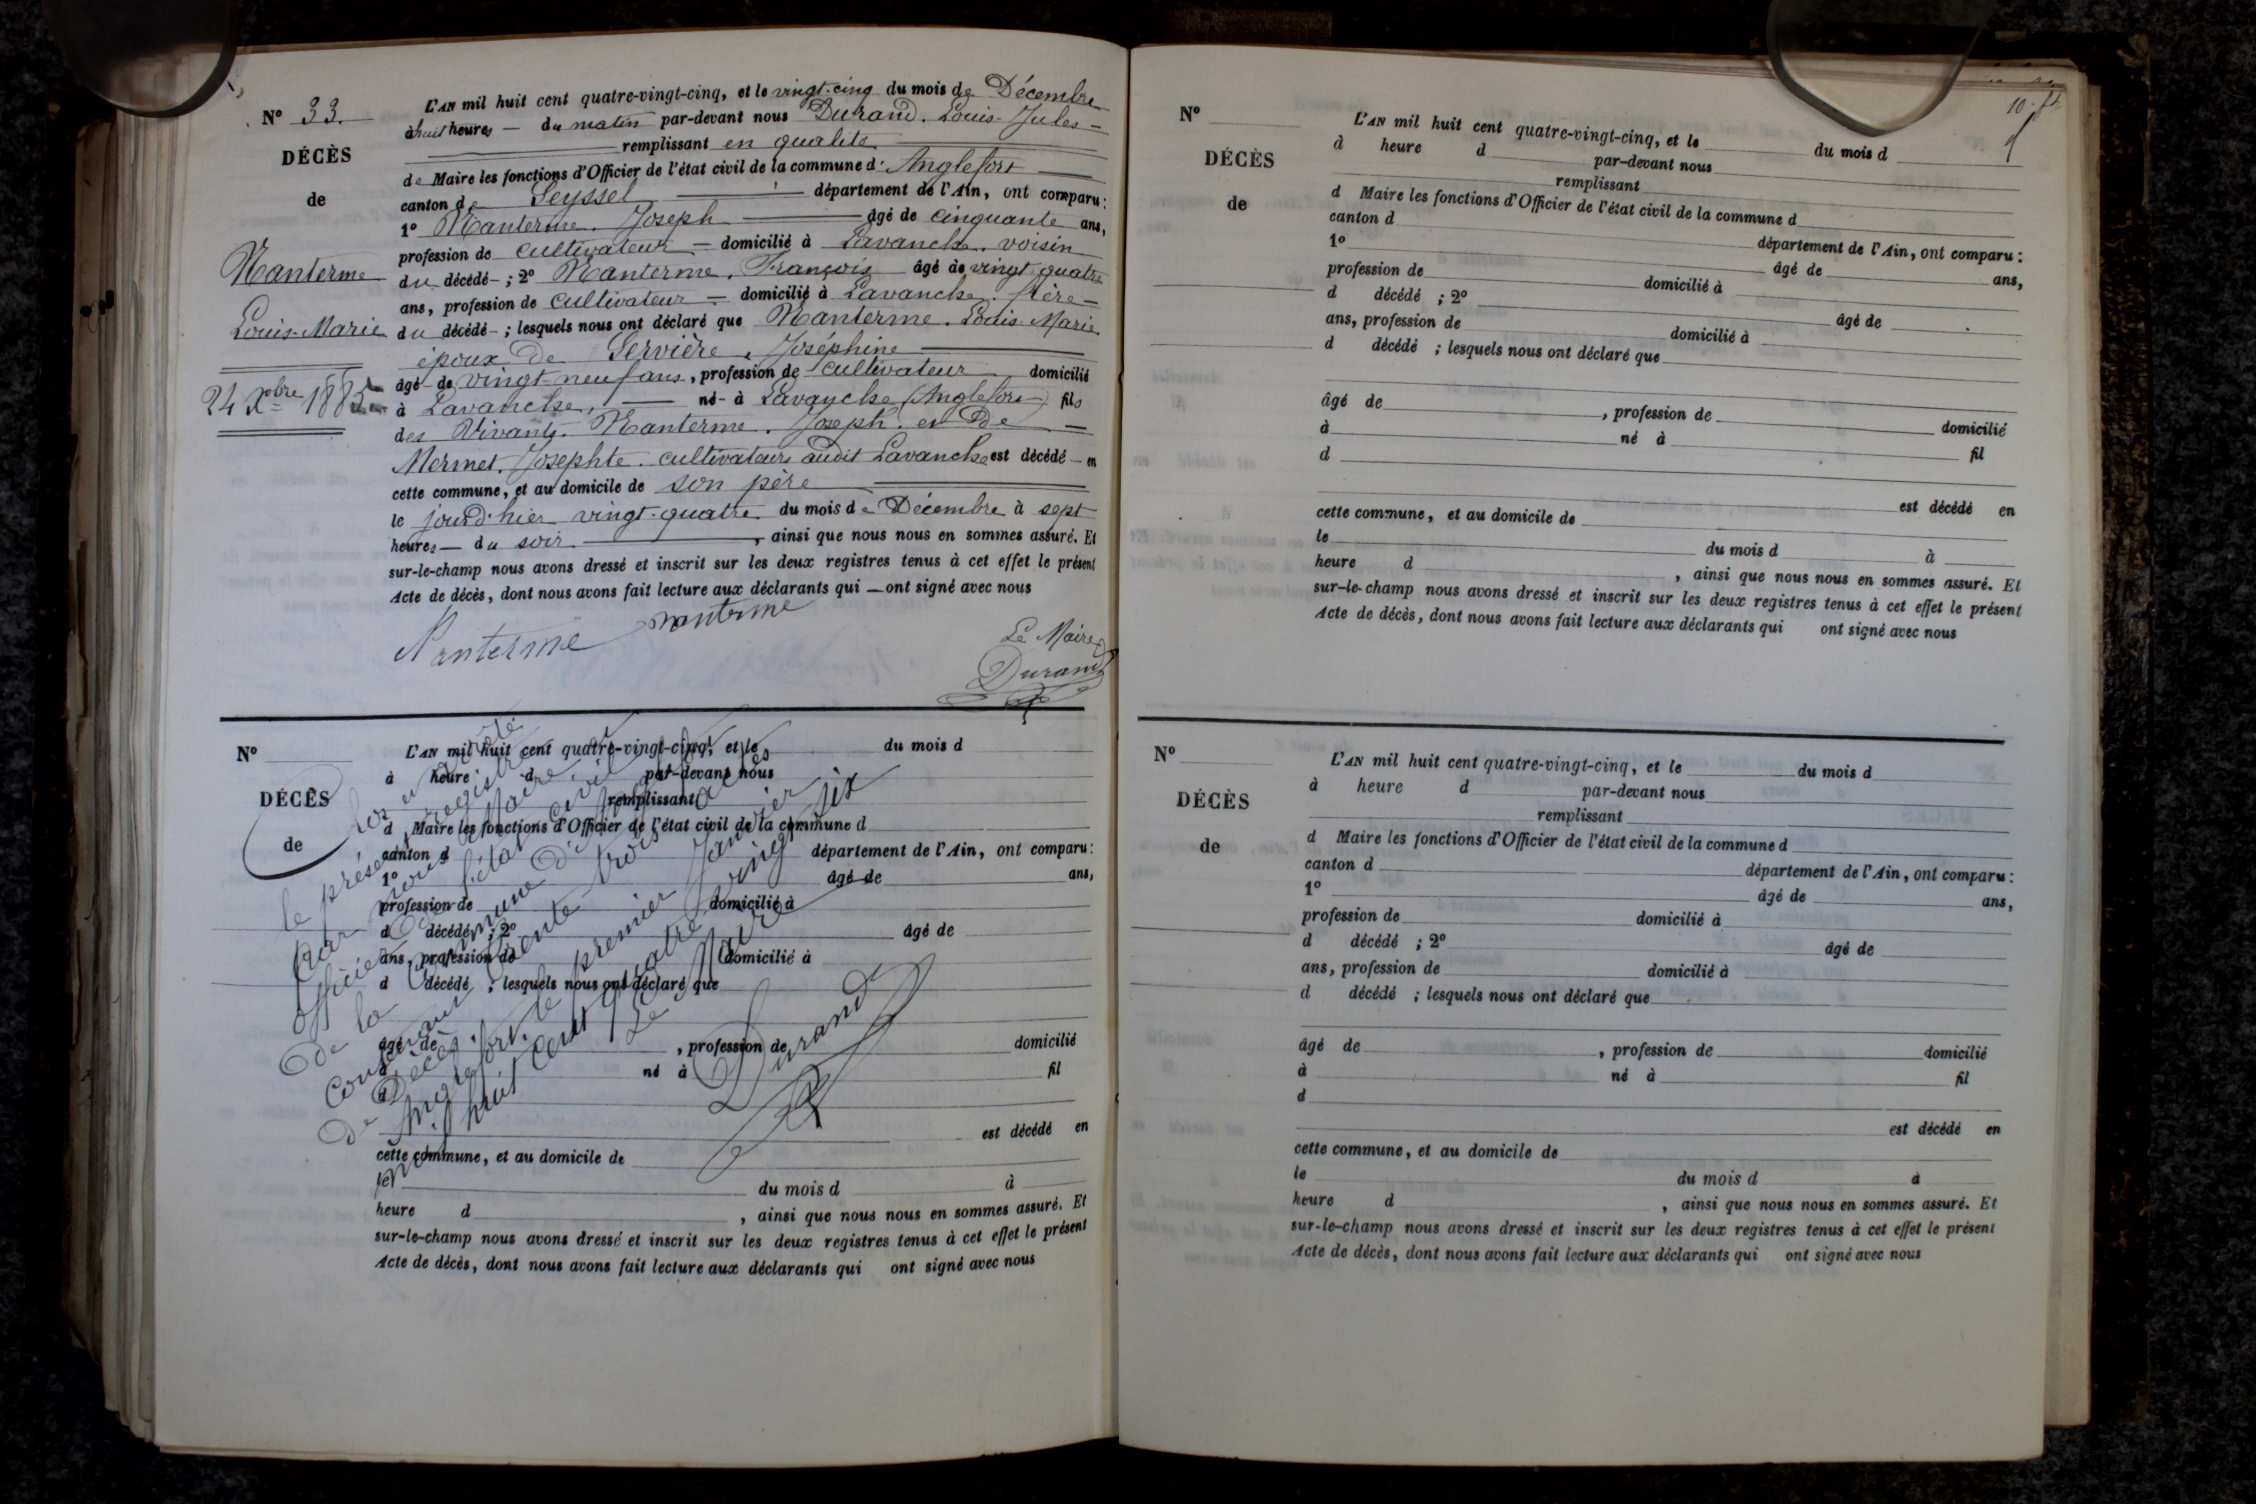 N° 33.
DÉCÈS
de
Nanterme
Louis-Marie
24 Xbre 1885
L'AN mil huit cent quatre-vingt-cinq, et le vingt-cinq du mois de Décembre
à huit heures — du matin par-devant nous Durand. Louis-Jules —
remplissant en qualité
de Maire les fonctions d'Officier de l'état civil de la commune d' Anglefort
canton de Seyssel département de l'Ain, ont comparu :
1° Nanterme. Joseph âgé de cinquante ans,
profession de cultivateur — domicilié à Lavanche. voisin
du décédé - ; 2° Nanterme. François âgé de vingt quatre
ans, profession de cultivateur — domicilié à Lavanche. frère —
du décédé - ; lesquels nous ont déclaré que Nanterme. Louis-Marie
époux de Servière. Joséphine
âgé de vingt neuf ans, profession de cultivateur domicilié
à Lavanche, né - à Lavanche (Anglefort) fils
des vivants. Nanterme. Joseph. et De —
Mermet. Josephte. cultivateurs audit Lavanche est décédé - en
cette commune, et au domicile de son père
le jourd'hier vingt-quatre du mois de Décembre à sept
heures — du soir , ainsi que nous nous en sommes assuré. Et
sur-le-champ nous avons dressé et inscrit sur les deux registres tenus à cet effet le présent
Acte de décès, dont nous avons fait lecture aux déclarants qui — ont signé avec nous
Nanterme nanterme
Le Maire
Durand
N°
DÉCÈS
de
L'AN mil huit cent quatre-vingt-cinq, et le du mois d
à heure d par-devant nous
remplissant
d Maire les fonctions d'Officier de l'état civil de la commune d
canton d département de l'Ain, ont comparu :
1° âgé de ans,
profession de domicilié à
d décédé ; 2° âgé de
ans, profession de domicilié à
d décédé ; lesquels nous ont déclaré que
âgé de , profession de domicilié
né à fil
est décédé en
cette commune, et au domicile de
le du mois d à
heure d , ainsi que nous nous en sommes assuré. Et
sur-le-champ nous avons dressé et inscrit sur les deux registres tenus à cet effet le présent
Acte de décès, dont nous avons fait lecture aux déclarants qui ont signé avec nous
Clos et arrêté
le présent registre
par nous Maire
officier de l'état civil
de la commune d'Anglefort
contenant trente-trois actes
de Décès.
Anglefort. le premier Janvier
mil huit cent quatre vingt six
Le Maire
Durand
10
N°
DÉCÈS
de
L'AN mil huit cent quatre-vingt-cinq, et le du mois d
à heure d par-devant nous
remplissant
d Maire les fonctions d'Officier de l'état civil de la commune d
canton d département de l'Ain, ont comparu :
1° âgé de ans,
profession de domicilié à
d décédé ; 2° âgé de
ans, profession de domicilié à
d décédé ; lesquels nous ont déclaré que
âgé de , profession de domicilié
à né à fil
d
est décédé en
cette commune, et au domicile de
le du mois d à
heure d , ainsi que nous nous en sommes assuré. Et
sur-le-champ nous avons dressé et inscrit sur les deux registres tenus à cet effet le présent
Acte de décès, dont nous avons fait lecture aux déclarants qui ont signé avec nous
N°
DÉCÈS
de
L'AN mil huit cent quatre-vingt-cinq, et le du mois d
à heure d par-devant nous
remplissant
d Maire les fonctions d'Officier de l'état civil de la commune d
canton d département de l'Ain, ont comparu :
1° âgé de ans,
profession de domicilié à
d décédé ; 2° âgé de
ans, profession de domicilié à
d décédé ; lesquels nous ont déclaré que
âgé de , profession de domicilié
à né à fil
d
est décédé en
cette commune, et au domicile de
le du mois d à
heure d , ainsi que nous nous en sommes assuré. Et
sur-le-champ nous avons dressé et inscrit sur les deux registres tenus à cet effet le présent
Acte de décès, dont nous avons fait lecture aux déclarants qui ont signé avec nous